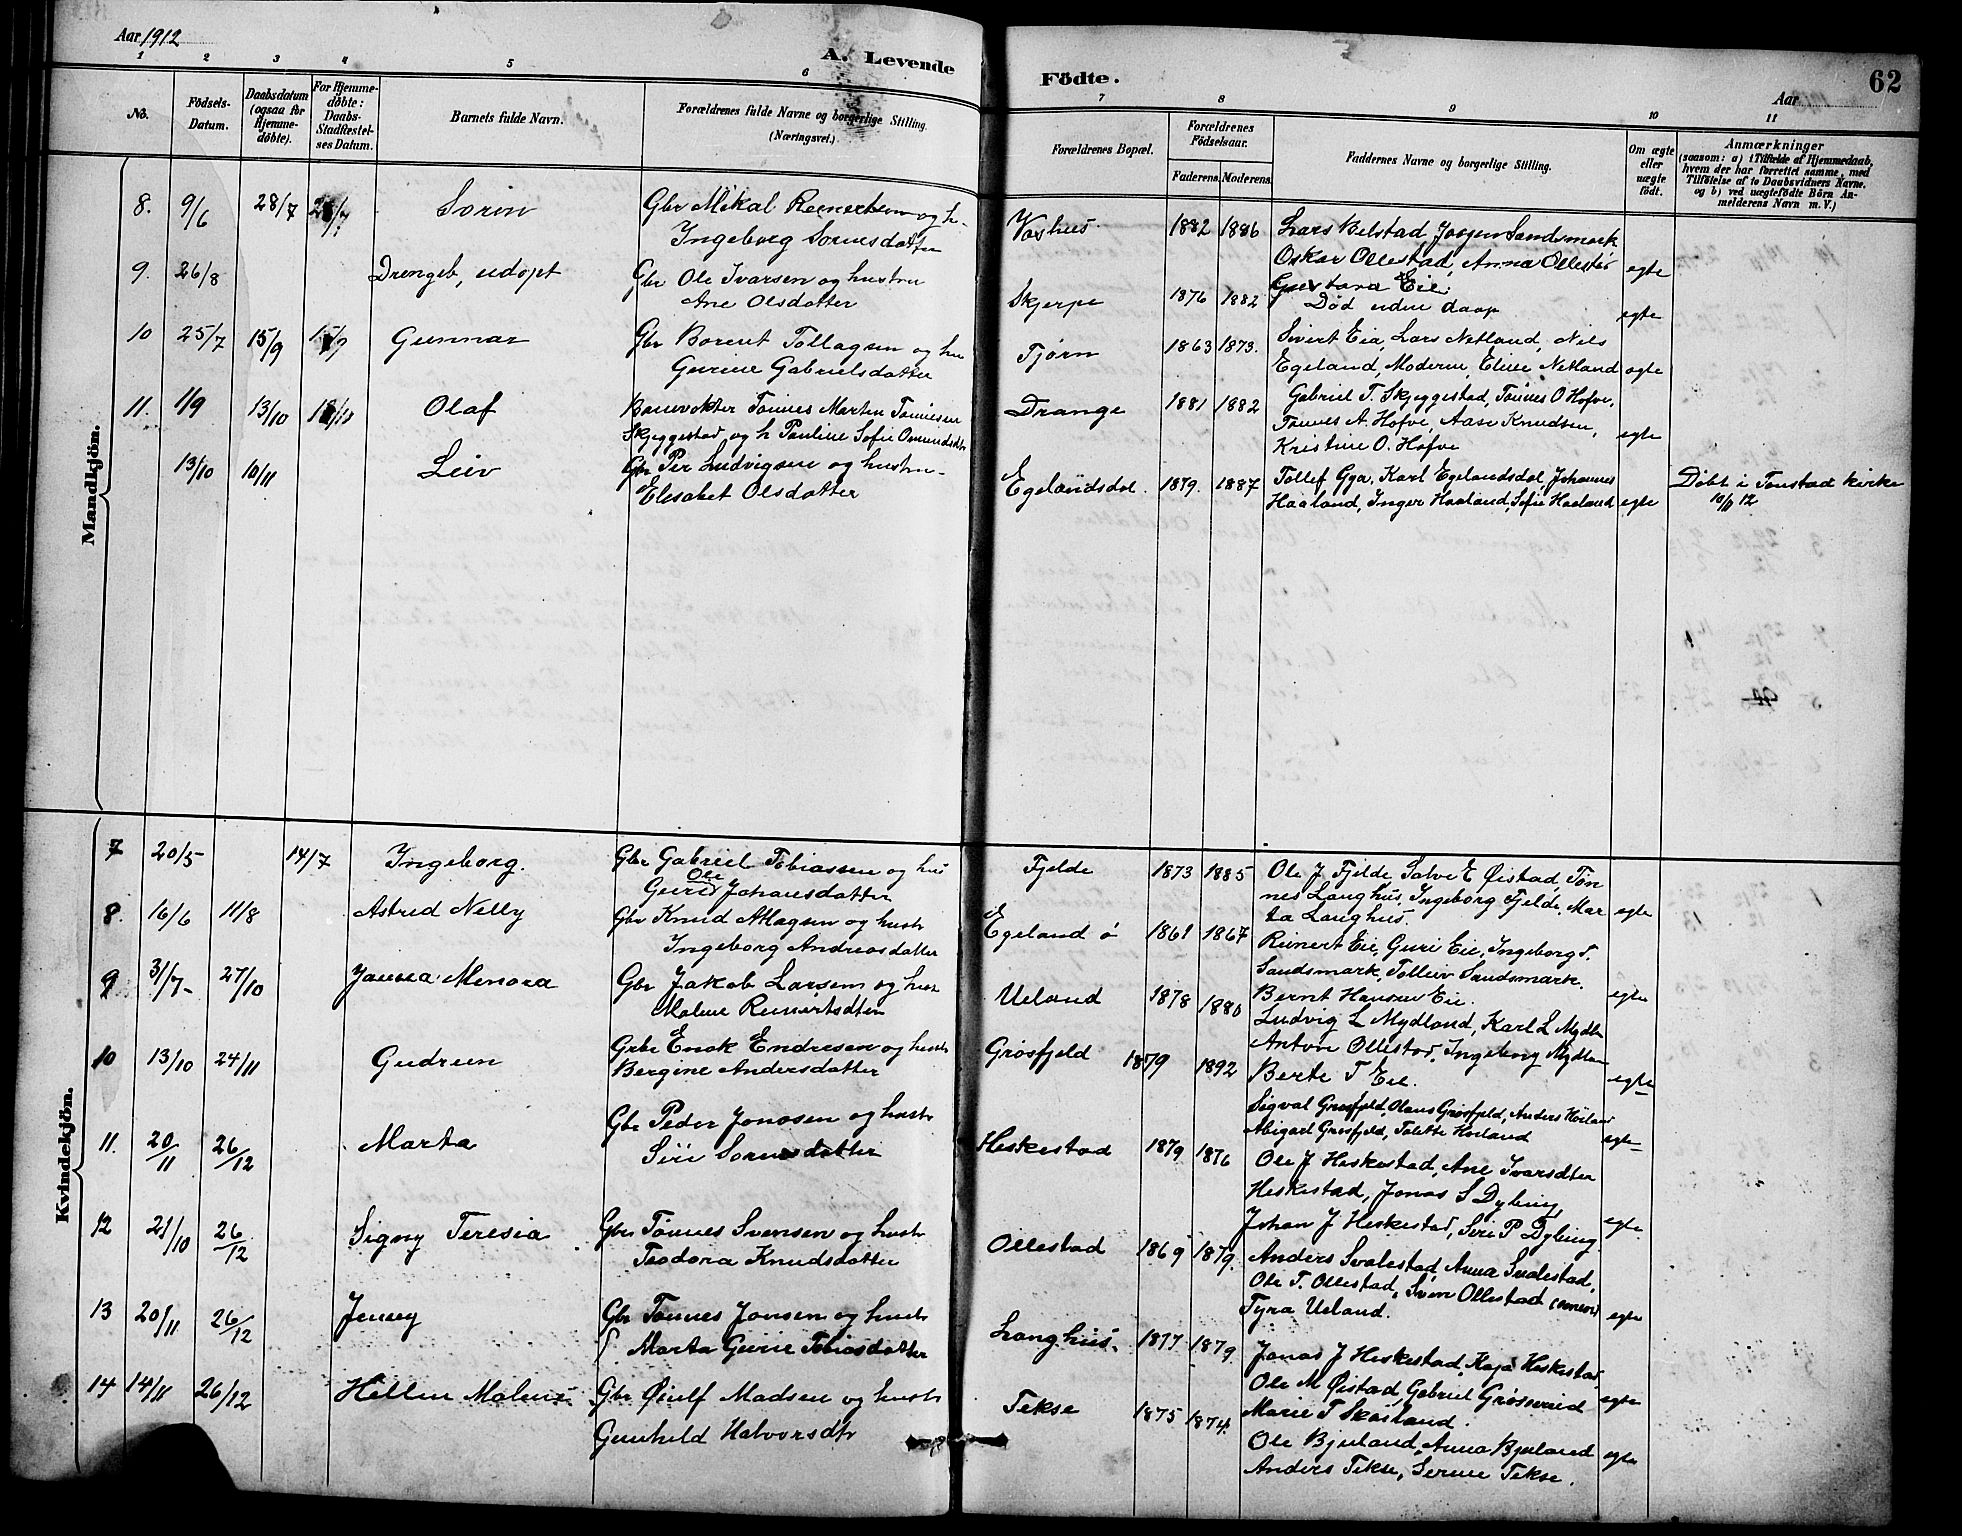 Aar 1912
A. Levende
Födte.
Aar
62
1 2 3 4 5 6 7 8 9 10 11
No.
Födsels-Datum.
Daabsdatum (ogsaa for Hjemme-döbte).
For Hjemme-döbte: Daabs-Stadfæstel-ses Datum.
Barnets fulde Navn.
Forældrenes fulde Navne og borgerlige Stilling. (Næringsvei.)
Forældrenes Bopæl.
Forældrenes Födselsaar.
Faderens. Moderens.
Faddernes Navne og borgerlige Stilling.
Om ægte eller uægte födt.
Anmærkninger
(saasom: a) i Tilfælde af Hjemmedaab,
hvem der har forrettet samme, med
Tilföielse af to Daabsvidners Navne,
og b) ved uægtefödte Börn An-
melderens Navn m. V.)
Mandkjön.
8. 9/6 28/7 Sorin Gbr Mikal Reinertsen og h.
Ingeborg Sornesdatter
Voshus 1882 1886 Lars Bilstad, Jorgen Sandsmork
Oskar Ollestad, Anna Ollestad
Gustava Eie. egte
9. 26/8 Drengeb. udøpt Gbr Ole Ivarsen og hustru
Ane Olsdatter
Skjerpe 1876 1882 Død uden daap egte
10 25/7 15/9 Gunnar Gbr Borent Tollagsen og hu
Gurine Gabrielsdatter
Tjørn 1863 1873. Sivert Eia, Lars Netland, Nils
Egeland, Moderen, Eline Netland egte
11. 1/9 13/10 Olaf Tønnes Martin Tønnesen
Skjeggestad og h Pauline Sofie Omundsdtr
Drange 1881 1882 Gabriel T. Skjeggestad, Tønnes O Hofve,
Tønnes A. Hofve, Aase Knudsen,
Kristine O. Hofve egte
13/10 10/11 Leiv Gbr Per Ludvigsen og hustru
Elisabet Olsdatter
Egelandsdal. 1879. 1887 Tollef Gya, Karl Egelandsdal, Johannes
Haaland, Inger Haaland, Sofie Haaland egte
Døbt i Tonstad kirke
10/11 12
Kvindekjön.
7 20/5 14/7 Ingeborg. Gbr Gabriel Tobiassen og hus
Guri Johansdatter
Fjelde 1873 1885 Ole J Fjelde, Salve E Øistad, Tøn
nes Langhus, Ingeborg Fjelde, Mar
ta Langhus. egte
8. 16/6 11/8 Astrid Nelly Gbr Knud Atlagsen og hustr
Ingeborg Andreasdatter
Egeland ø 1861 1867 Reinert Eie, Guri Eie, Ingeborg T.
Sandsmark, Tolleiv Sandsmark.
Bernt Hansen Eie. egte
9 31/7 27/10 Menora Gbr Jakob Larsen og hust
Malene Reinertsdtr
Ueland 1878 1880 Ludvig L Mydland, Karl L Mydla
Anton Ollestad, Ingeborg Mydlan
Berte T Eie. egte
10 13/10 24/11 Gudrun Gbr Enok Endresen og hustr
Bergine Andersdatter
Grosfjeld 1879 1892 Sigval Grosfjeld, Olaus Grosfjeld, Anders Høiland
Abigael Grosfjeld, Tolette Høiland egte
11. 20/11 26/12 Marta Gbr Peder Jonasen og hustr
Siri Sornesdatter
Heskestad 1879 1876 Ole J Heskestad, Ane Ivarsdtr
Heskestad, Jonas S Dybing,
Johan J Heskestad, Siri P Dybing. egte
12 21/10 26/12 Signy Teresia Gbr Tønnes Svensen og hustr
Teodora Knudsdatter
Ollestad 1869 1879. Anders Svalestad, Anna Svalestad,
Ole T. Ollestad, Sven Ollestad
Tyra Ueland. egte
13 20/11 26/12 Jenny Gbr Tønnes Jonsen og hustr
Marta Gurie Tobiasdatter
Langhus. 1877 1879 Jonas J Heskestad, Kaja Heskestad,
Ole M Øistad, Gabriel Grøsvried
Marie T Skailand. egte
14 14/11 26/12 Hellen Malene Gbr Øiulf Madsen og hustr
Gunhild Halvorsdtr
Tekse 1875 1874. Ole Bjuland, Anna Bjuland
Anders Tekse, Serine Tekse. egte